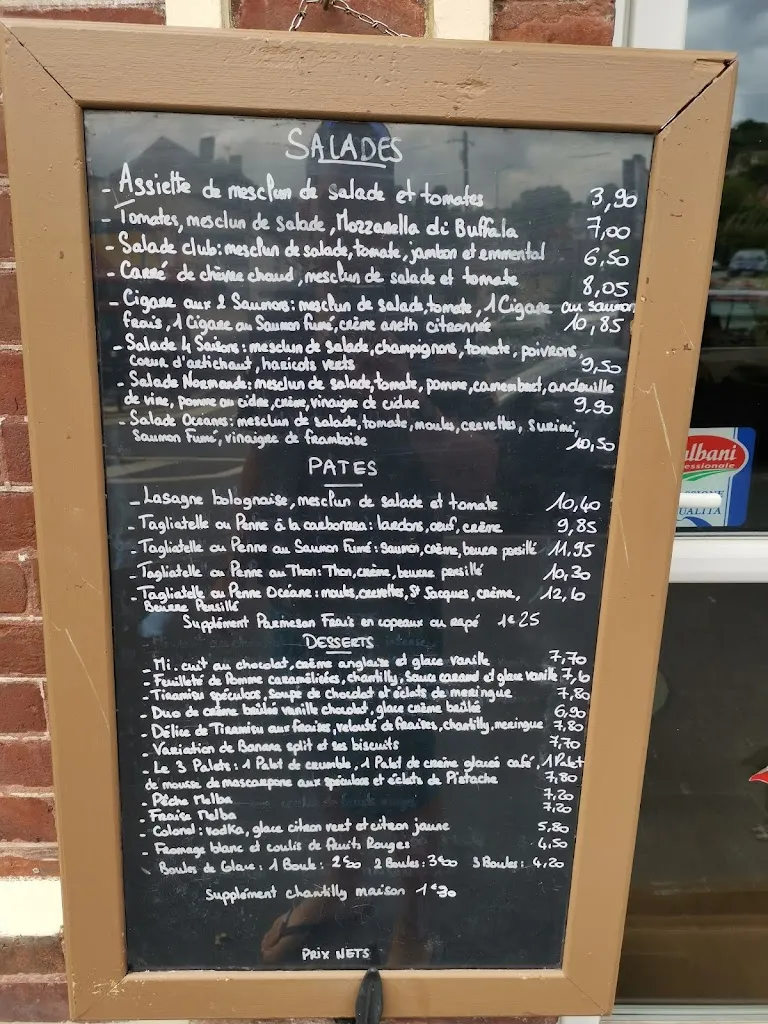 SALADES
- Assiette de mesclun de salade et tomates 3,90
- Tomates, mesclun de salade, Mozzarella di Buffala 7,00
- Salade club: mesclun de salade, tomate, jambon et emmental 6.50
- Carré de chèvre chaud, mesclun de salade et tomate 8,05
- Cigare aux 2 Saumons: mesclun de salade, tomate, 1 Cigare au saumon
frais, 1 Cigare au Saumon fumé, crème aneth citronnée 10,85
- Salade 4 Saisons: mesclun de salade, champignons, tomate, poivrons,
coeur d'artichaut, haricots verts 9,50
- Salade Normande: mesclun de salade, tomate, pomme, camembert, andouille
de vire, pomme au cidre, crème, vinaigre de cidre 9,90
- Salade Oceane: mesclun de salade, tomate, moules, crevettes, surimi,
Saumon Fumé, vinaigre de framboise 10,50
PATES
- Lasagne bolognaise, mesclun de salade et tomate 10,40
- Tagliatelle ou Penne à la carbonara: lardons, oeuf, crème 9,85
- Tagliatelle ou Penne au Saumon Fumé: Saumon, crème, beurre persillé 11.95
- Tagliatelle ou Penne au Thon: Thon, crème, beurre persillé 10,30
- Tagliatelle ou Penne Océane: moules, crevettes, St Jacques, crème, 12,10
Beurre Persillé
Supplément Parmesan Frais en copeaux ou rapé 1€25
DESSERTS
- Mi. cuit au chocolat, crème anglaise et glace vanille 7,70
- Feuilleté de Pomme caramélisées, chantilly, sauce caramel et glace vanille 7,10
- Tiramisu spéculos, Soupe de chocolat et éclats de meringue 7,80
- Duo de crème brûlée vanille chocolat, glace crème brûlée 6,90
- Délice de Tiramisu aux fraises, velouté de fraises, chantilly, meringue 7,80
- Variation de Banana split et ses biscuits 7,70
- Le 3 Palets: 1 Palet de crumble, 1 Palet de crème glacée café, 1 Palet
de mousse de mascarpone aux spéculos et éclats de Pistache 7,80
- Pêche Melba 7,20
- Fraise Melba 7,20
- Colonel: vodka, glace citron vert et citron jaune 5,80
- Fromage blanc et coulis de fruits Rouges 4,50
Boules de Glace: 1 Boule: 2€00 2 Boules: 3€00 3 Boules: 4,20
Supplément chantilly maison 1€30
PRIX NETS
lbani
essionale
UALITÀ